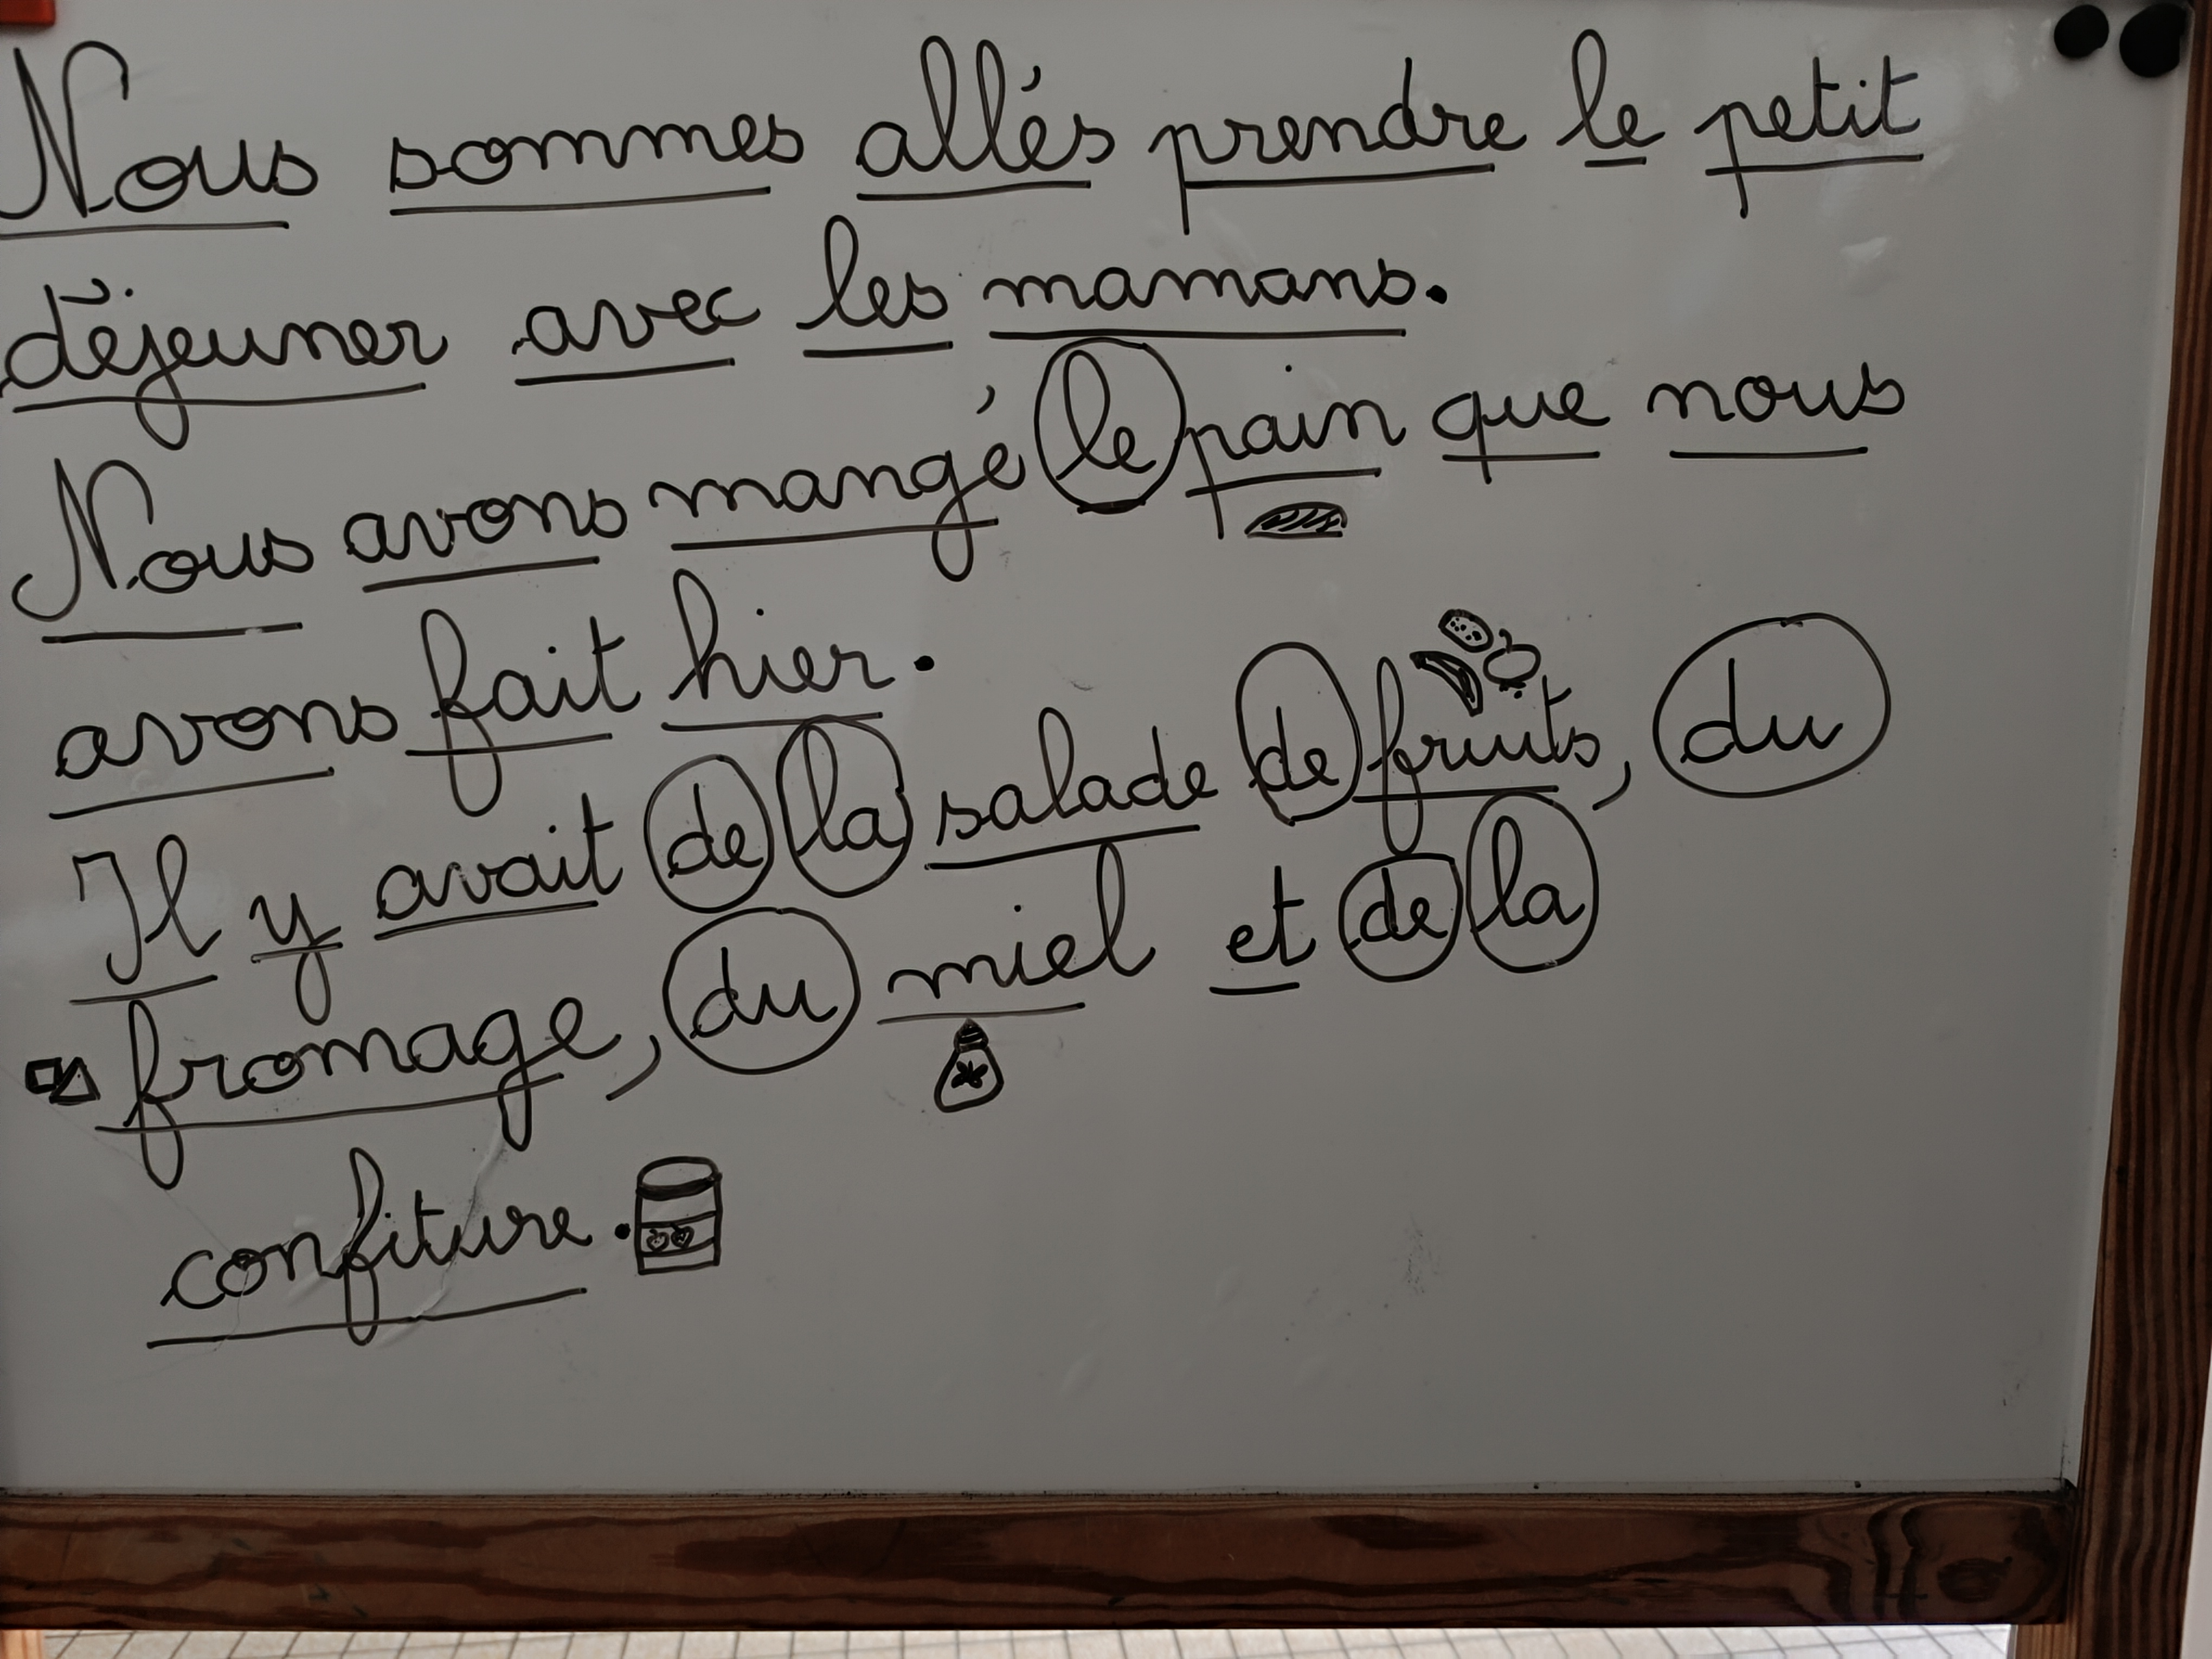 Nous sommes allés prendre le petit
déjeuner avec les mamans.
Nous avons mangé le pain que nous
avons fait hier.
Il y avait de la salade de fruits, du
fromage, du miel et de la
confiture.